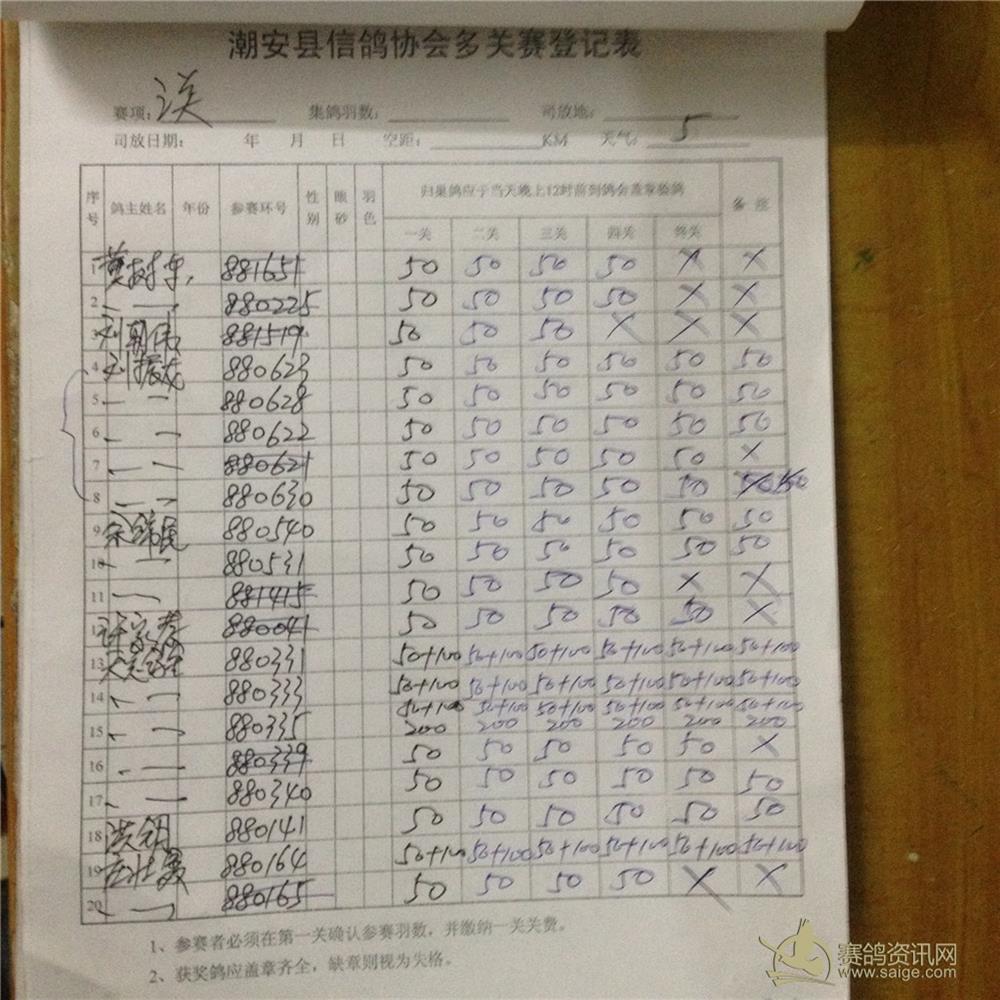 潮安县信鸽协会多关赛登记表
赛项: 集鸽羽数: 司放地:
司放日期: 年 月 日 空距: KM 天气: 5
序号 鸽主姓名 年份 参赛环号 性别 眼砂 羽色 归巢鸽应于当天晚上12时前到鸽会盖章验鸽 备注
一关 二关 三关 四关 终关
1 881651 50 50 50 50 X X
2 880225 50 50 50 50 X X
3 刘朝伟 881519 50 50 50 X X X
4 刘振龙 880623 50 50 50 50 50 50
5 880628 50 50 50 50 50 50
6 880622 50 50 50 50 50 50
7 880621 50 50 50 50 50 X
8 880630 50 50 50 50 50 50
9 880540 50 50 50 50 50 50
10 880531 50 50 50 50 50 50
11 881415 50 50 50 50 X X
12 880041 50 50 50 50 50 X
13 880331 50+100 50+100 50+100 50+100 50+100 50+100
14 880333 50+100 50+100 50+100 50+100 50+100 50+100
15 880335 50+100 50+100 50+100 50+100 50+100 50+100
200 200 200 200 200 200
16 880339 50 50 50 50 50 X
17 880340 50 50 50 50 50 50
18 880141 50 50 50 50 50 50
19 880164 50+100 50+100 50+100 50+100 50+100 50+100
20 880165 50 50 50 50 X X
1、参赛者必须在第一关确认参赛羽数，并缴纳一关关费。
2、获奖鸽应盖章齐全，缺章则视为失格。
赛鸽资讯网
www.saige.com